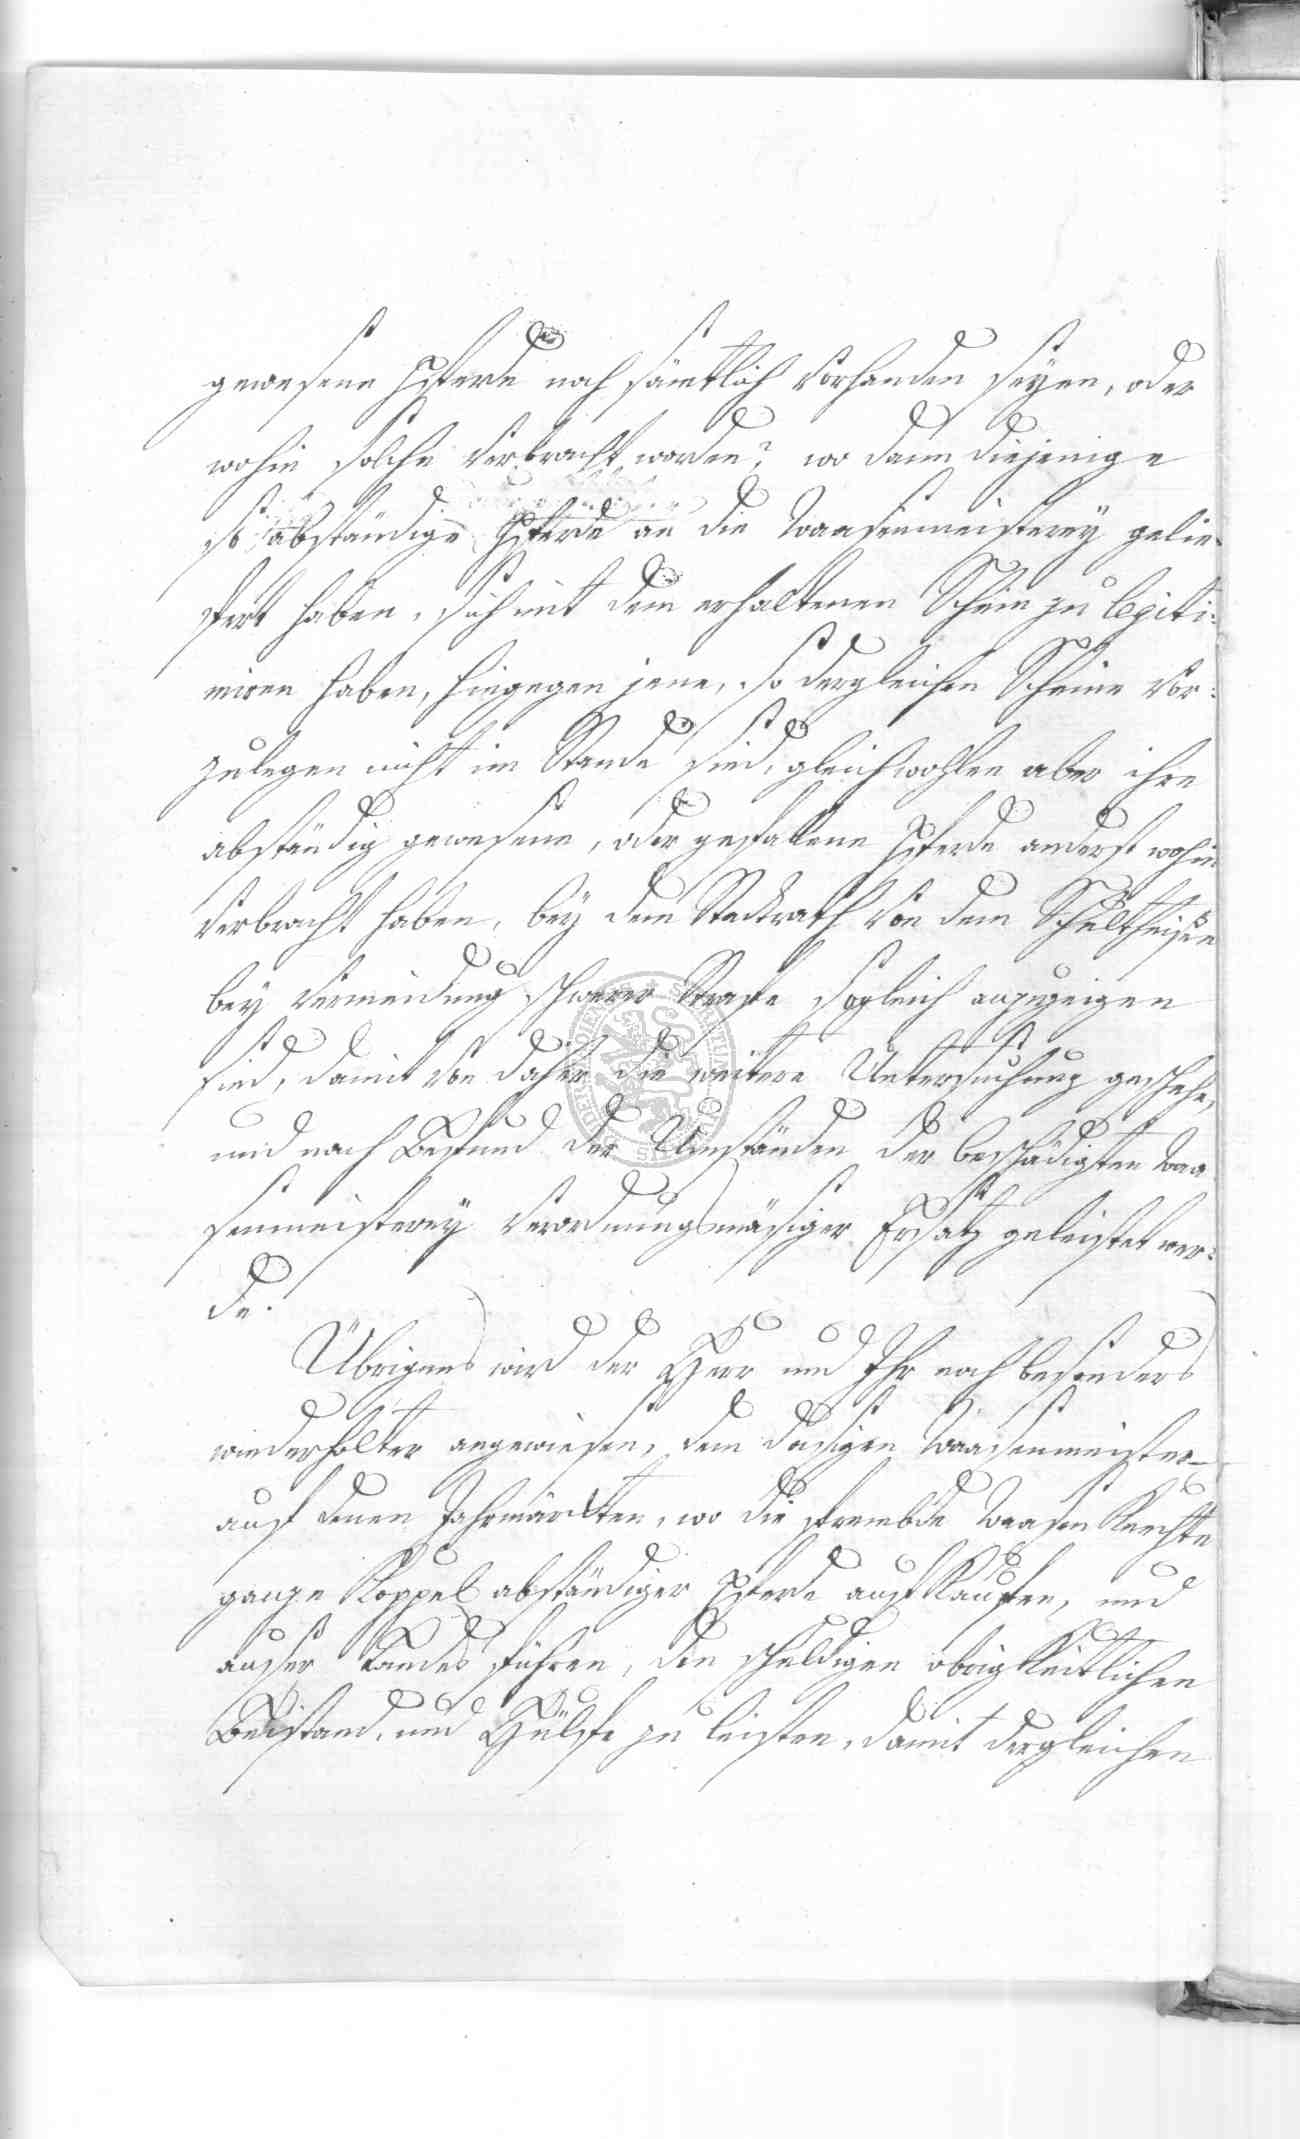 gewesene Pferde noch sämtlich vorhanden seyen, oder
wohin solche verbracht worden? wo dann diejenige
so abständige Pferde an die Waasenmeisterey gelie-
fert haben, sich mit dem erhaltenen Schein zu legiti:
miren haben, hingegen jene, so dergleichen Scheine vor:
zulegen nicht im Stande sind, gleichwohlen aber ihre
abständig gewesene, oder gefallene Pferde anderst wohin
verbracht haben, bey dem Stadtrath von dem Schultheißen
bey Vermeidung schwerer Strafe sogleich anzuzeigen
sind, damit von daher die weitere Untersuchung geschehe,
und nach Befund der Umständen der beschädigten Waa
senmeisterey verordnungsmäsiger Ersatz geleistet wer:
de.
Übrigens wird der Herr und Ihr noch besonders
wiederholter angewiesen, dem dasigen Waasenmeister
auf denen Jahrmärckten, wo die frembde Waasen Knechte
ganze Koppel abständiger Pferde auf Kaufen, und
ausser Landes führen, den schuldigen obrigkeitlichen
Beistand, und Hülfe zu leisten, damit dergleichen